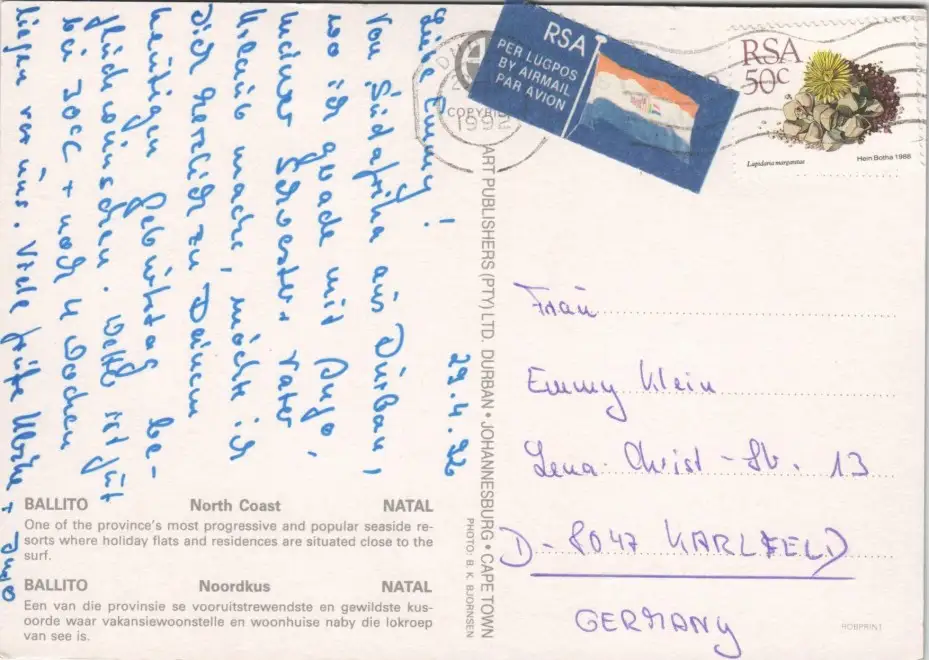 29.4.92
Liebe Emmy!
Von Südafrika aus Durban,
wo ich grade mit Ingo,
meiner Schwester + Vater
Urlaub mache, möchte ich
Dich herzlich zu Deinem
heutigen Geburtstag be-
glückwünschen. Wetter ist gut
bei 30°C + noch 4 Wochen
liegen vor uns. Viele Grüße Ulrike + Ingo
BALLITO North Coast NATAL
One of the province's most progressive and popular seaside re-
sorts where holiday flats and residences are situated close to the
surf.
BALLITO Noordkus NATAL
Een van die provinsie se vooruitstrewendste en gewildste kus-
oorde waar vakansiewoonstelle en woonhuise naby die lokroep
van see is.
COPYRIGHT
1992
ART PUBLISHERS (PTY) LTD. DURBAN • JOHANNESBURG • CAPE TOWN
PHOTO: B. K. BJORNSEN
RSA
PER LUGPOS
BY AIRMAIL
PAR AVION
RSA
50c
Lapidaria margaretae
Hein Botha 1988
Frau
Emmy Klein
Lena-Christ-Str. 13
D-8047 KARLSFELD
GERMANY
HOBPRINT